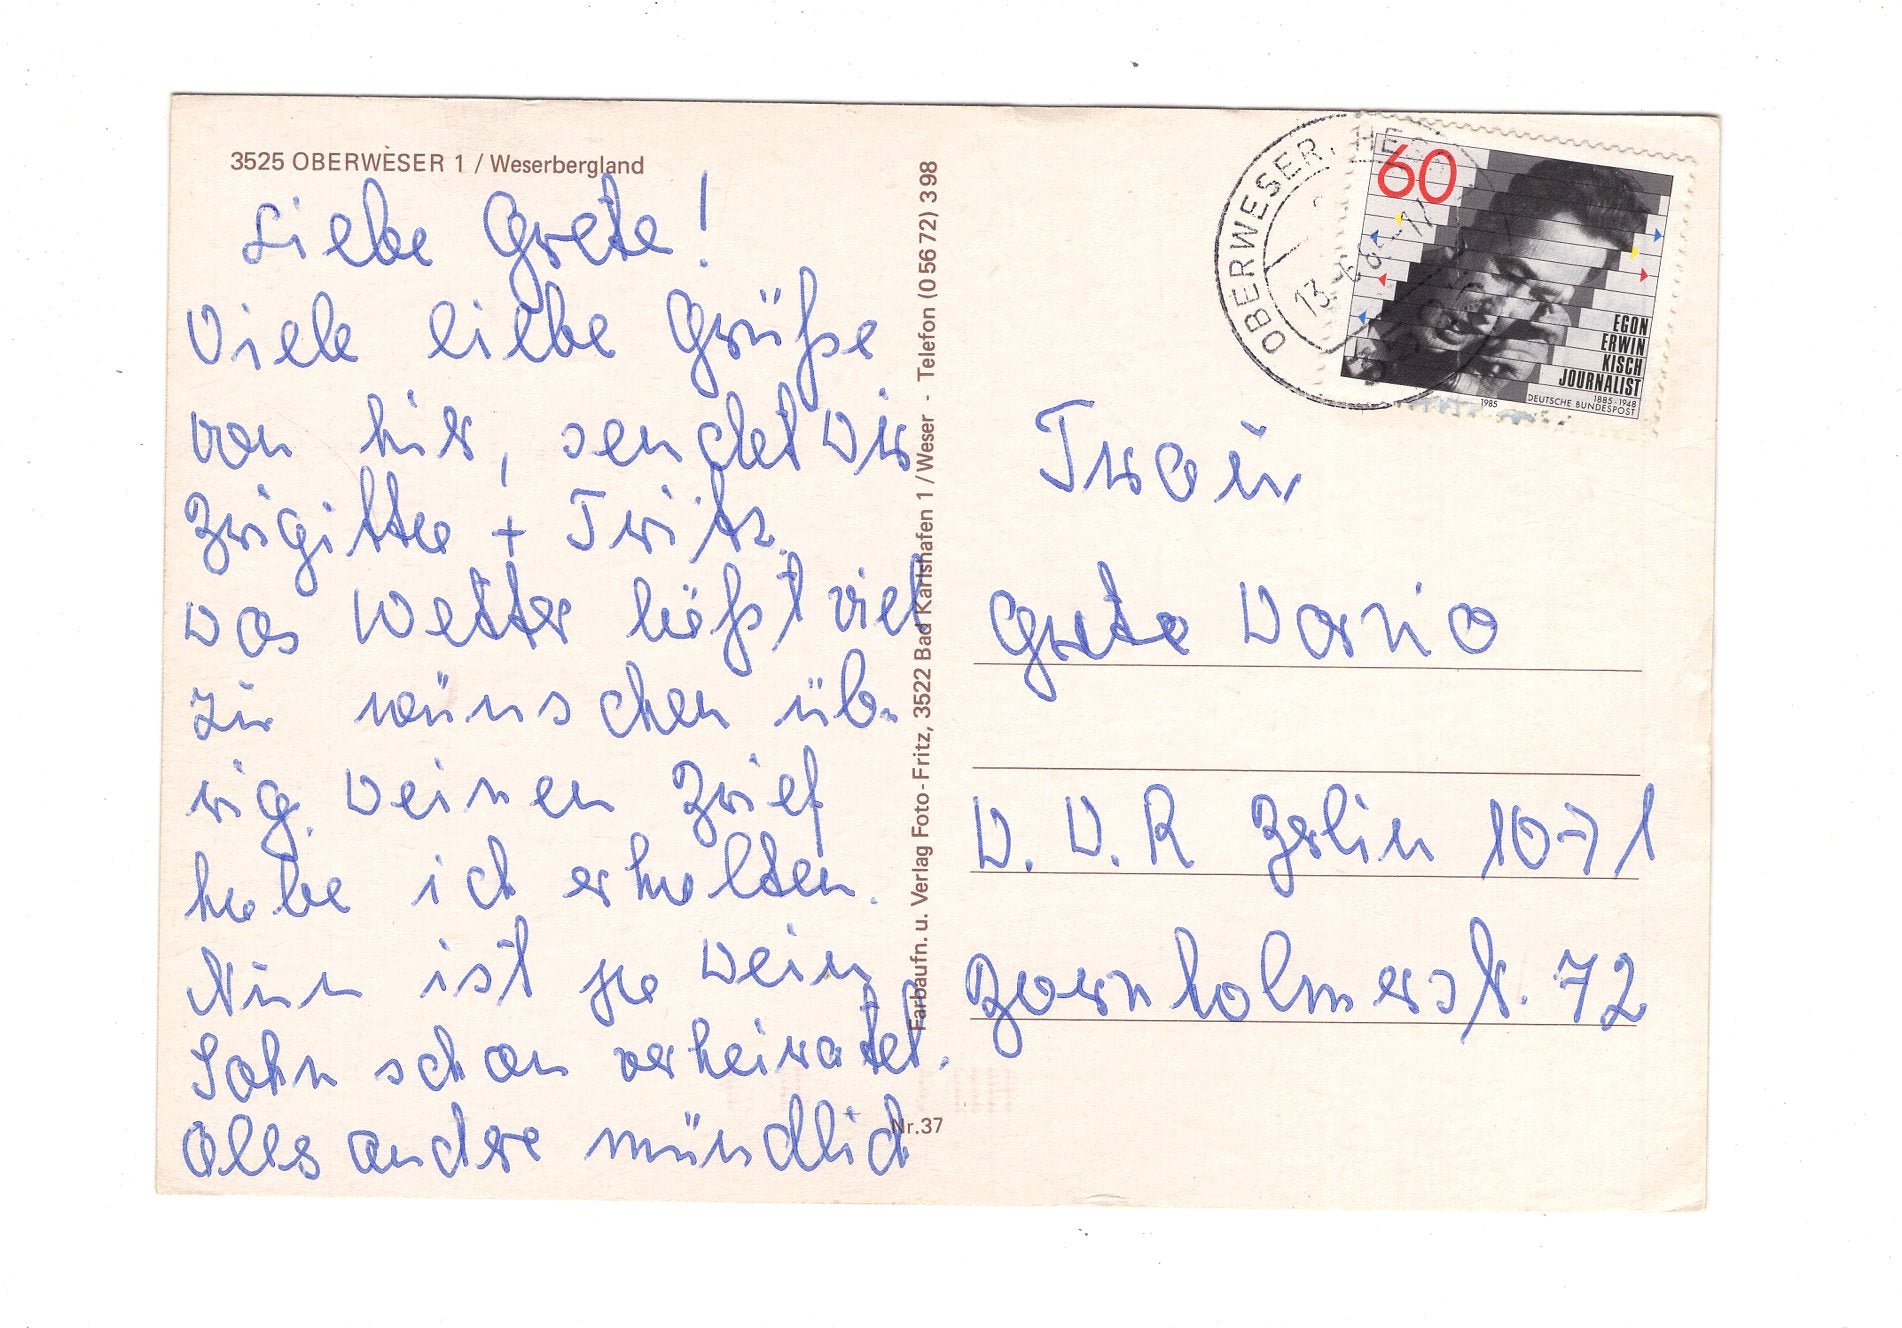 3525 OBERWESER 1 / Weserbergland
Liebe Grete!
Viele liebe Grüße
von hir, sendet dir
Brigitte + Fritz.
Das Wetter läßt viel
zu wünschen üb-
rig. Deinen Brief
habe ich erhalten.
Nun ist ja Dein
Sohn schon verheiratet.
Alles andere mündlich
Farbaufn. u. Verlag Foto-Fritz, 3522 Bad Karlshafen 1 / Weser - Telefon (0 56 72) 3 98
Nr. 37
OBERWESER, HES
13.
60
EGON
ERWIN
KISCH
JOURNALIST
1885-1948
DEUTSCHE BUNDESPOST
1985
Frau
Grete Dario
D. D. R Berlin 1071
Bornholmerstr. 72